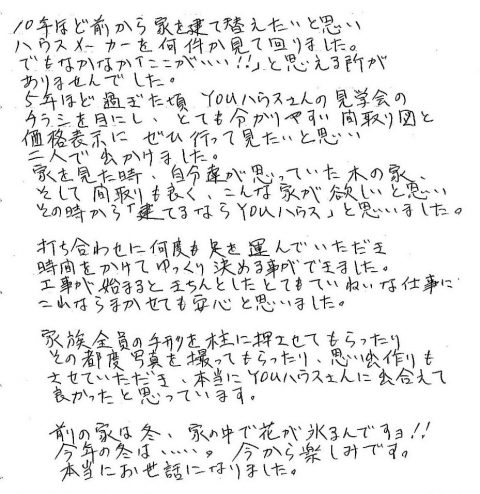 10年ほど前から家を建て替えたいと思い
ハウスメーカーを何件か見て回りました。
でもなかなか「ここがいい!!」と思える所が
ありませんでした。
5年ほど過ぎた頃 YOUハウスさんの見学会の
チラシを目にし、とても分かりやすい間取り図と
価格表示に ぜひ行って見たいと思い
二人で出かけました。
家を見た時、自分達が思っていた木の家、
そして間取りも良く、こんな家が欲しいと思い
その時から「建てるならYOUハウス」と思いました。
打ち合わせに何度も足を運んでいただき
時間をかけてゆっくり決める事ができました。
工事が始まるときちんとしたとてもていねいな仕事に
これならまかせても安心と思いました。
家族全員の手形を柱に押させてもらったり
その都度写真を撮ってもらったり、思い出作りも
させていただき、本当にYOUハウスさんに出合えて
良かったと思っています。
前の家は冬、家の中で花が氷るんですョ!!
今年の冬は・・・・・。今から楽しみです。
本当にお世話になりました。